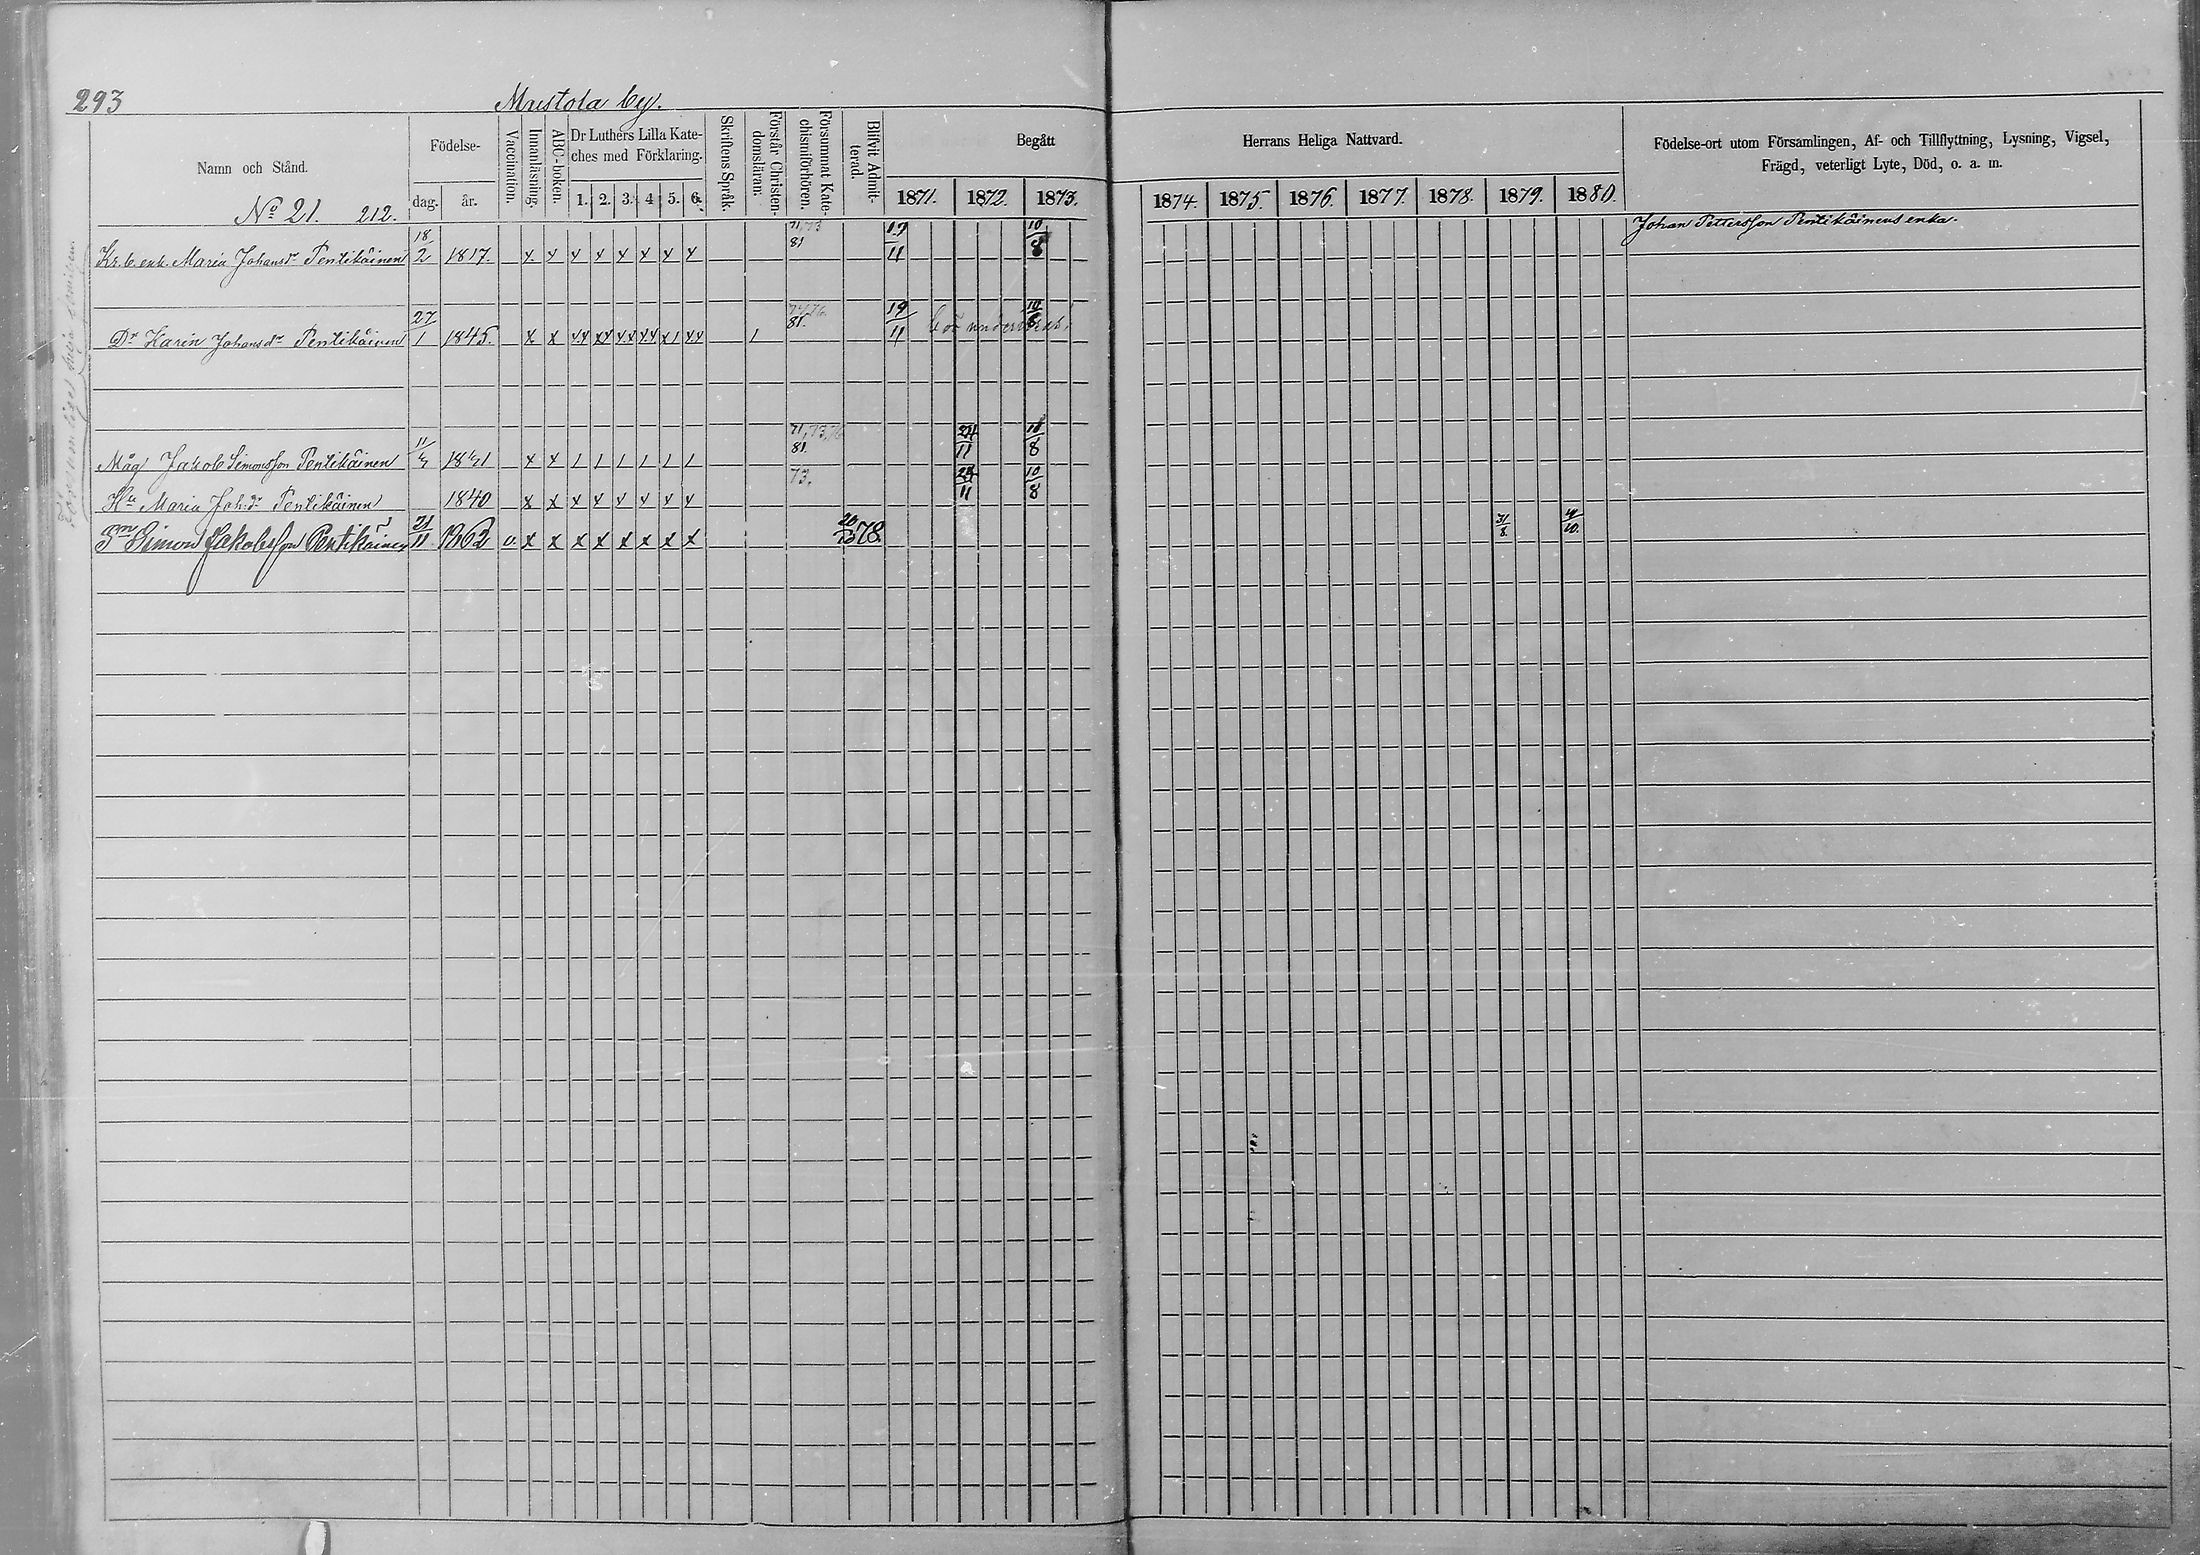 293
Mustola by.
Namn och Stånd.
Födelse-
dag.
år.
Vaccination.
Innanläsning.
ABC-boken.
Dr Luthers Lilla Kate-
ches med Förklaring.
1. 2. 3. 4 5. 6.
Skriftens Språk.
Förstår Christen-
domsläran.
Försummat Kate-
chismiförhören.
Blifvit Admit-
terad.
Begått
1871. 1872. 1873.
Herrans Heliga Nattvard.
1874. 1875. 1876. 1877. 1878. 1879. 1880.
Födelse-ort utom Församlingen, Af- och Tillflyttning, Lysning, Vigsel,
Frägd, veterligt Lyte, Död, o. a. m.
No 21. 212.
Kr. b. enk. Maria Johansdr Pentikäinen 18/2 1817. x x x x x x x x 71,73 81 19/11 10/8 Johan Pettersson Pentikäinens enka.
Dr Karin Johansdr Pentikäinen 27/1 1845. x x xx xx xx xx x1 xx 1 81. 19/11 10/8
Måg Jakob Simonsson Pentikäinen 11/5 1841 x x 1 1 1 1 1 1 71,73,76 81. 24/11 10/8
Hu Maria Joh:dr Pentikäinen 1840 x x x x x x x x 73. 24/11 10/8
Sn Simon Jakobsson Pentikäinen 21/11 1862 v. x x x x x x x x 78. 31/8. 4/10.